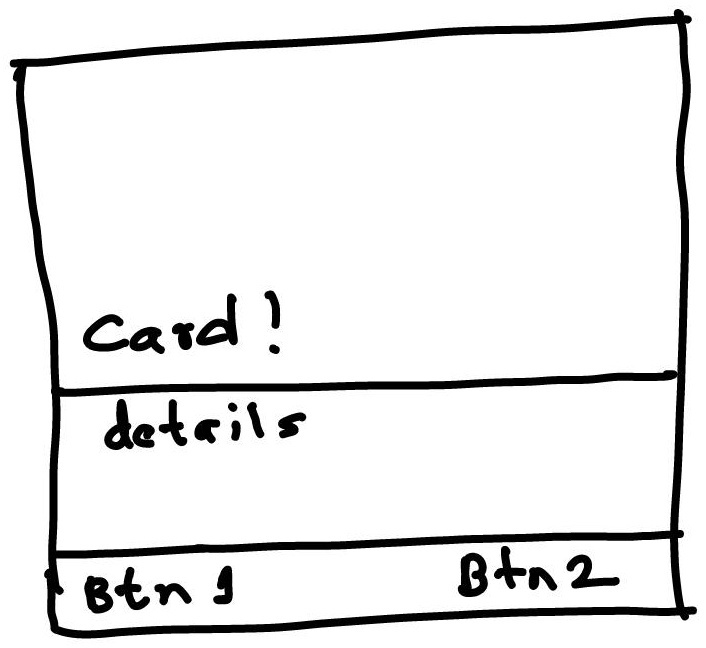 Card!
details
Btn 1
Btn 2